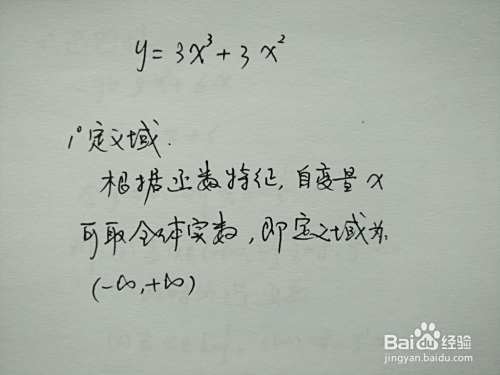 y=3x³+3x²
1°定义域.
根据函数特征,自变量x
可取全体实数,即定义域为:
(-∞,+∞)
Baidu经验
jingyan.baidu.com